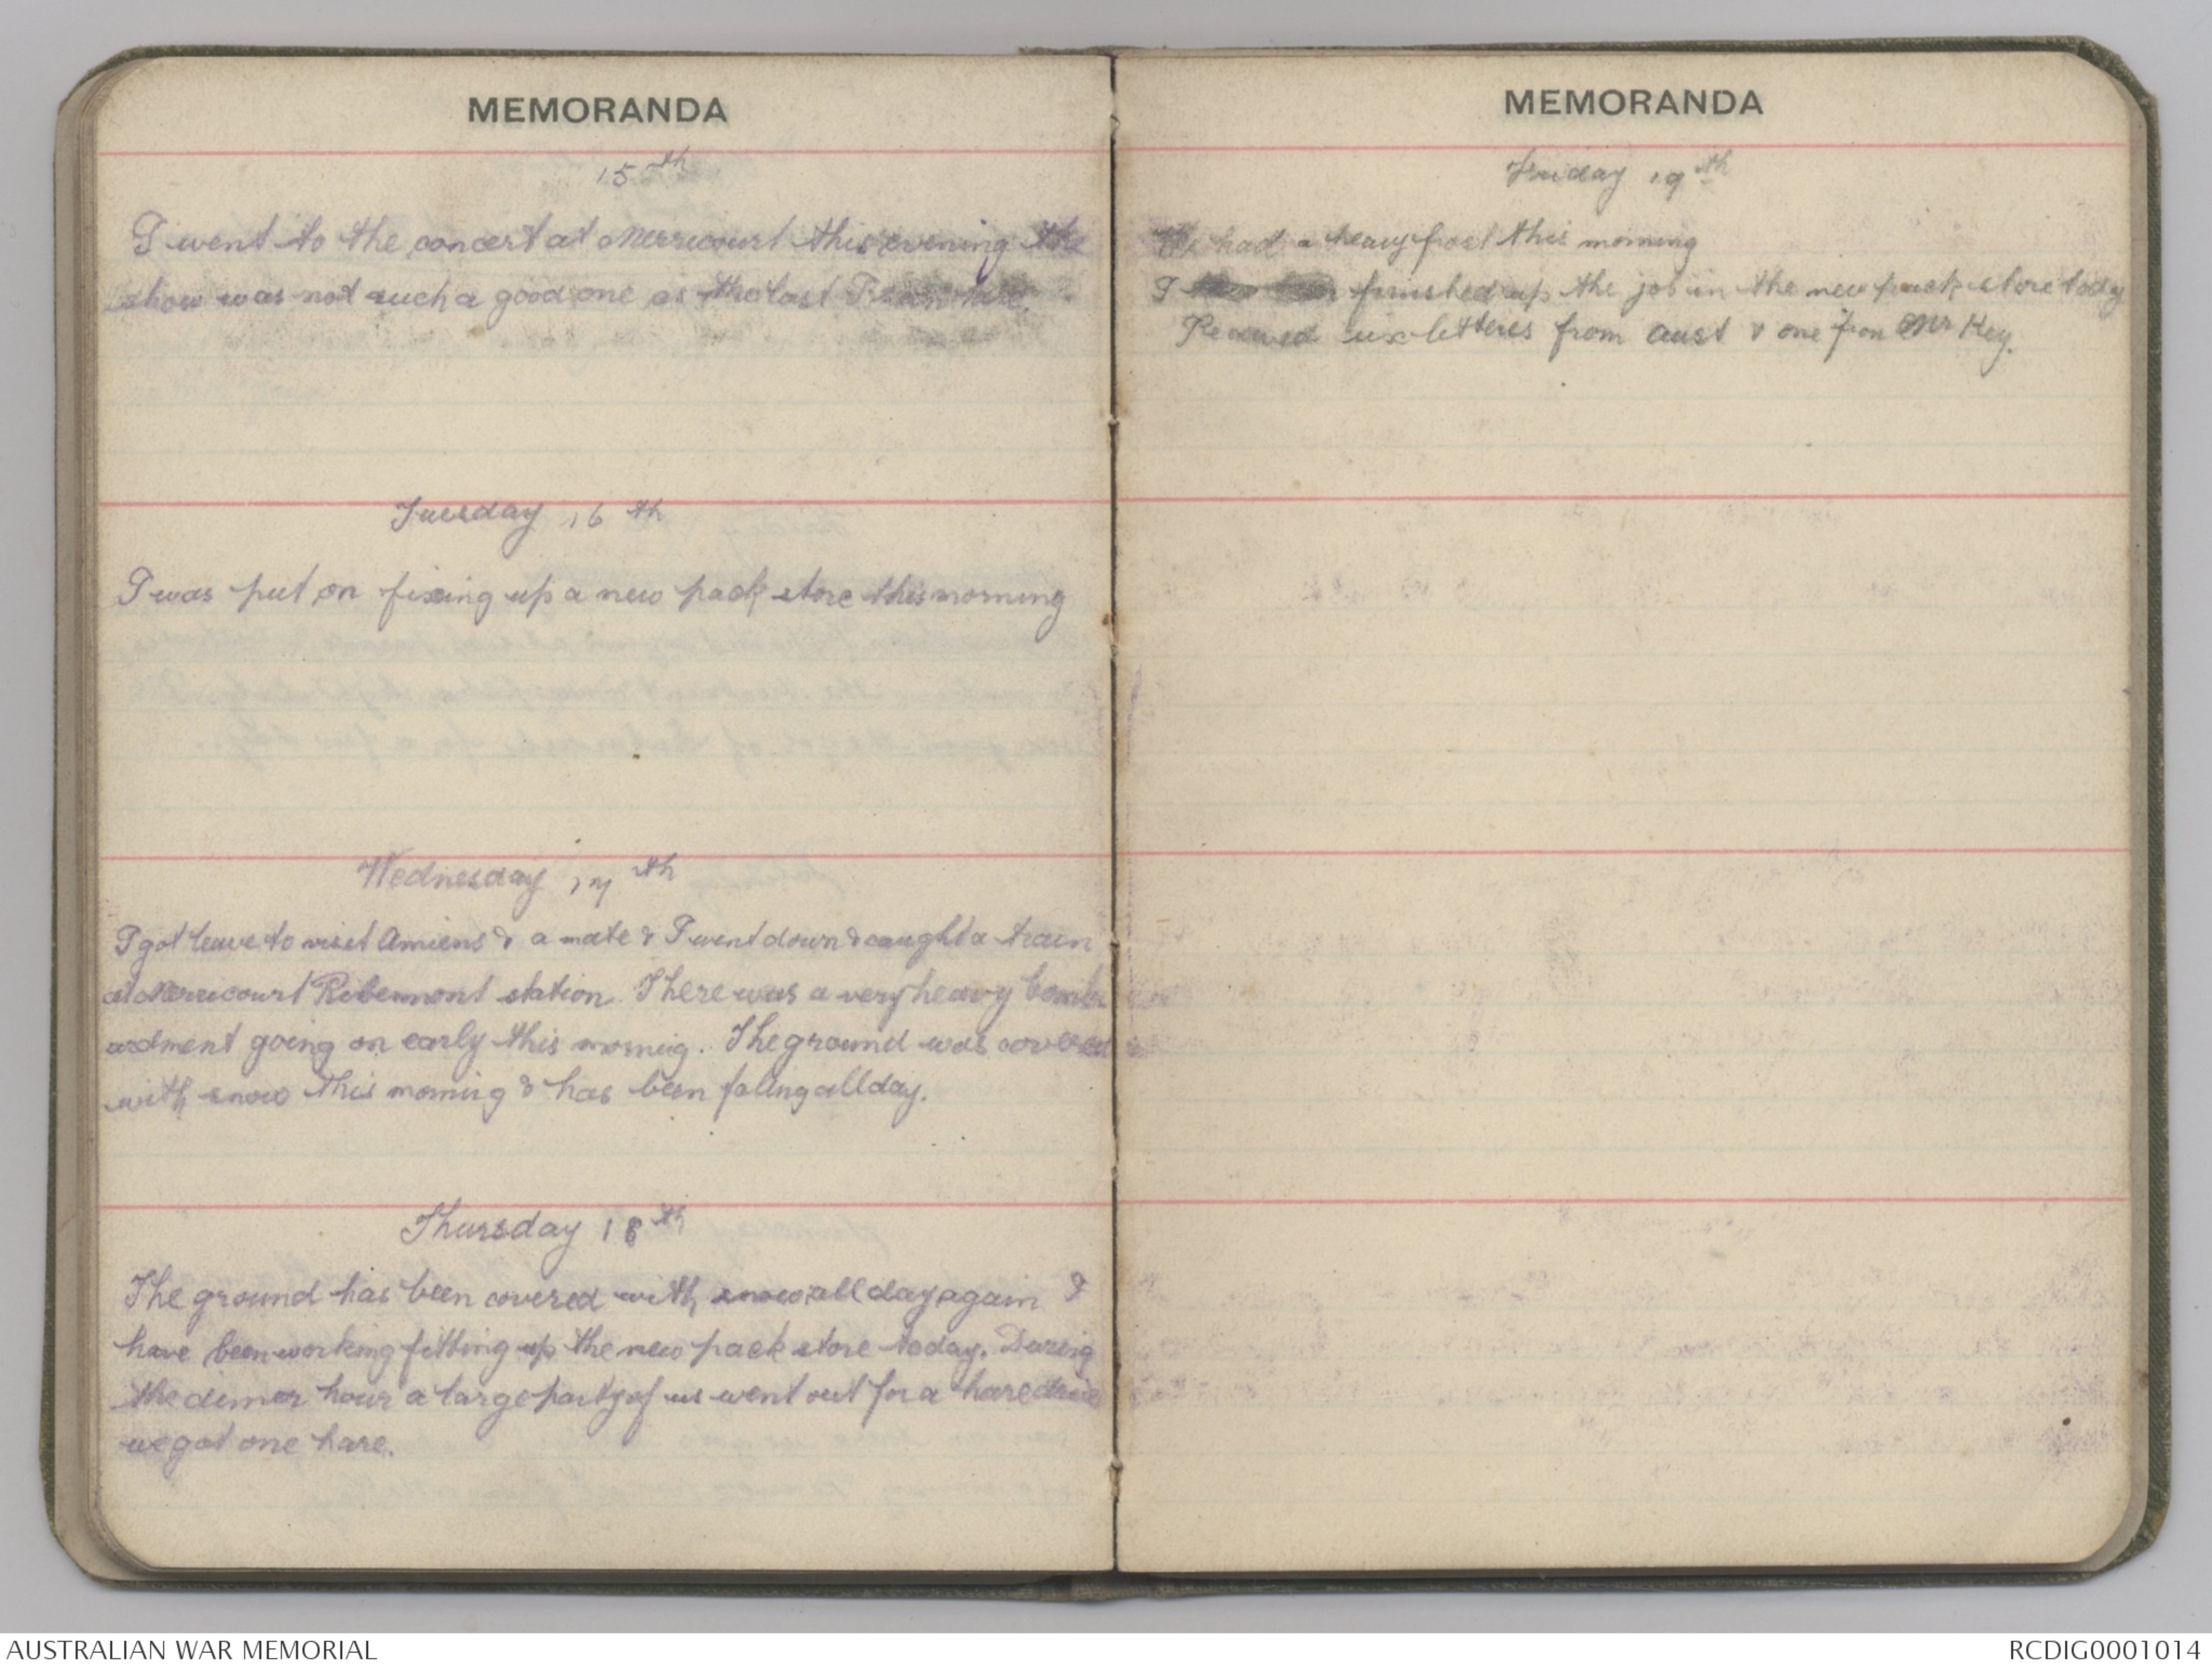 MEMORANDA
15th
I went to the concert at Merricourt this evening the
show was not such a good one as the last
Tuesday 16th
I was put on fixing up a new pack store this morning
Wednesday 17th
I got leave to visit Amiens & a mate & I went down & caught a train
at Merricourt Ribemont station. There was a very heavy bomb
ardment going on early this mornig. The ground was covered
with snow this morning & has been faling all day.
Thursday 18th
The ground has been covered with snow all day again I
have been working fitting up the new pack store today. Durig
the dinner hour a large party of us went out for a hare drive
we got one hare.
MEMORANDA
Friday 19th
We had a heavy frost this morning
I finished up the job in the new pack store today
Received six letteres from Aust & one from Mr Key.
AUSTRALIAN WAR MEMORIAL
RCDIG0001014